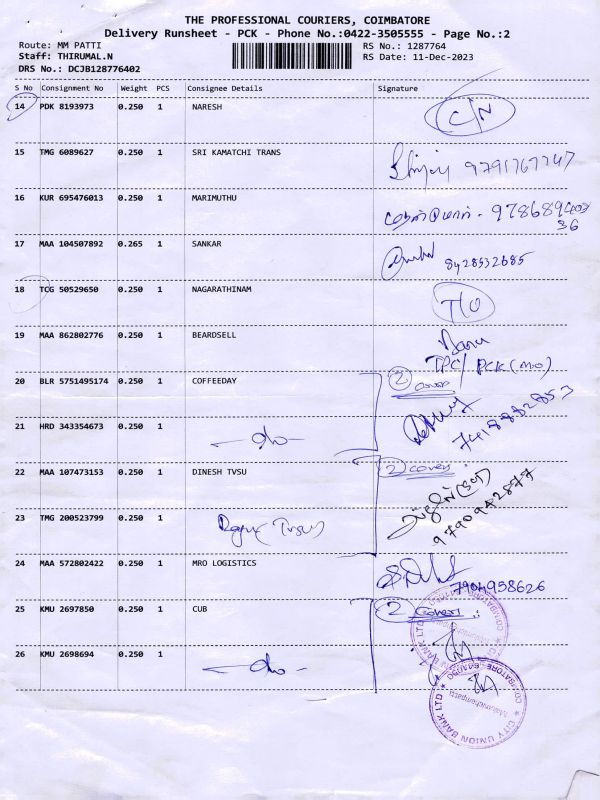 THE PROFESSIONAL COURIERS, COIMBATORE
Delivery Runsheet - PCK - Phone No.:0422-3505555 - Page No.:2
Route: MM PATTI RS No.: 1287764
Staff: THIRUMAL.N RS Date: 11-Dec-2023
DRS No.: DCJB128776402
S No Consignment No Weight PCS Consignee Details Signature
14 PDK 8193973 0.250 1 NARESH C/N
15 TMG 6089627 0.250 1 SRI KAMATCHI TRANS 9791767747
16 KUR 695476013 0.250 1 MARIMUTHU
17 MAA 104507892 0.265 1 SANKAR 8428532685
18 TCG 50529650 0.250 1 NAGARATHINAM T/O
19 MAA 862802776 0.250 1 BEARDSELL
TPC/ PCK (MO)
20 BLR 5751495174 0.250 1 COFFEEDAY 2 cover
7418882853
21 HRD 343354673 0.250 1 -do-
22 MAA 107473153 0.250 1 DINESH TVSU 2 cover:
9790942877
23 TMG 200523799 0.250 1
24 MAA 572802422 0.250 1 MRO LOGISTICS
7904958626
25 KMU 2697850 0.250 1 CUB 2 Covers:
26 KMU 2698694 0.250 1 -do-
CITY UNION BANK LTD